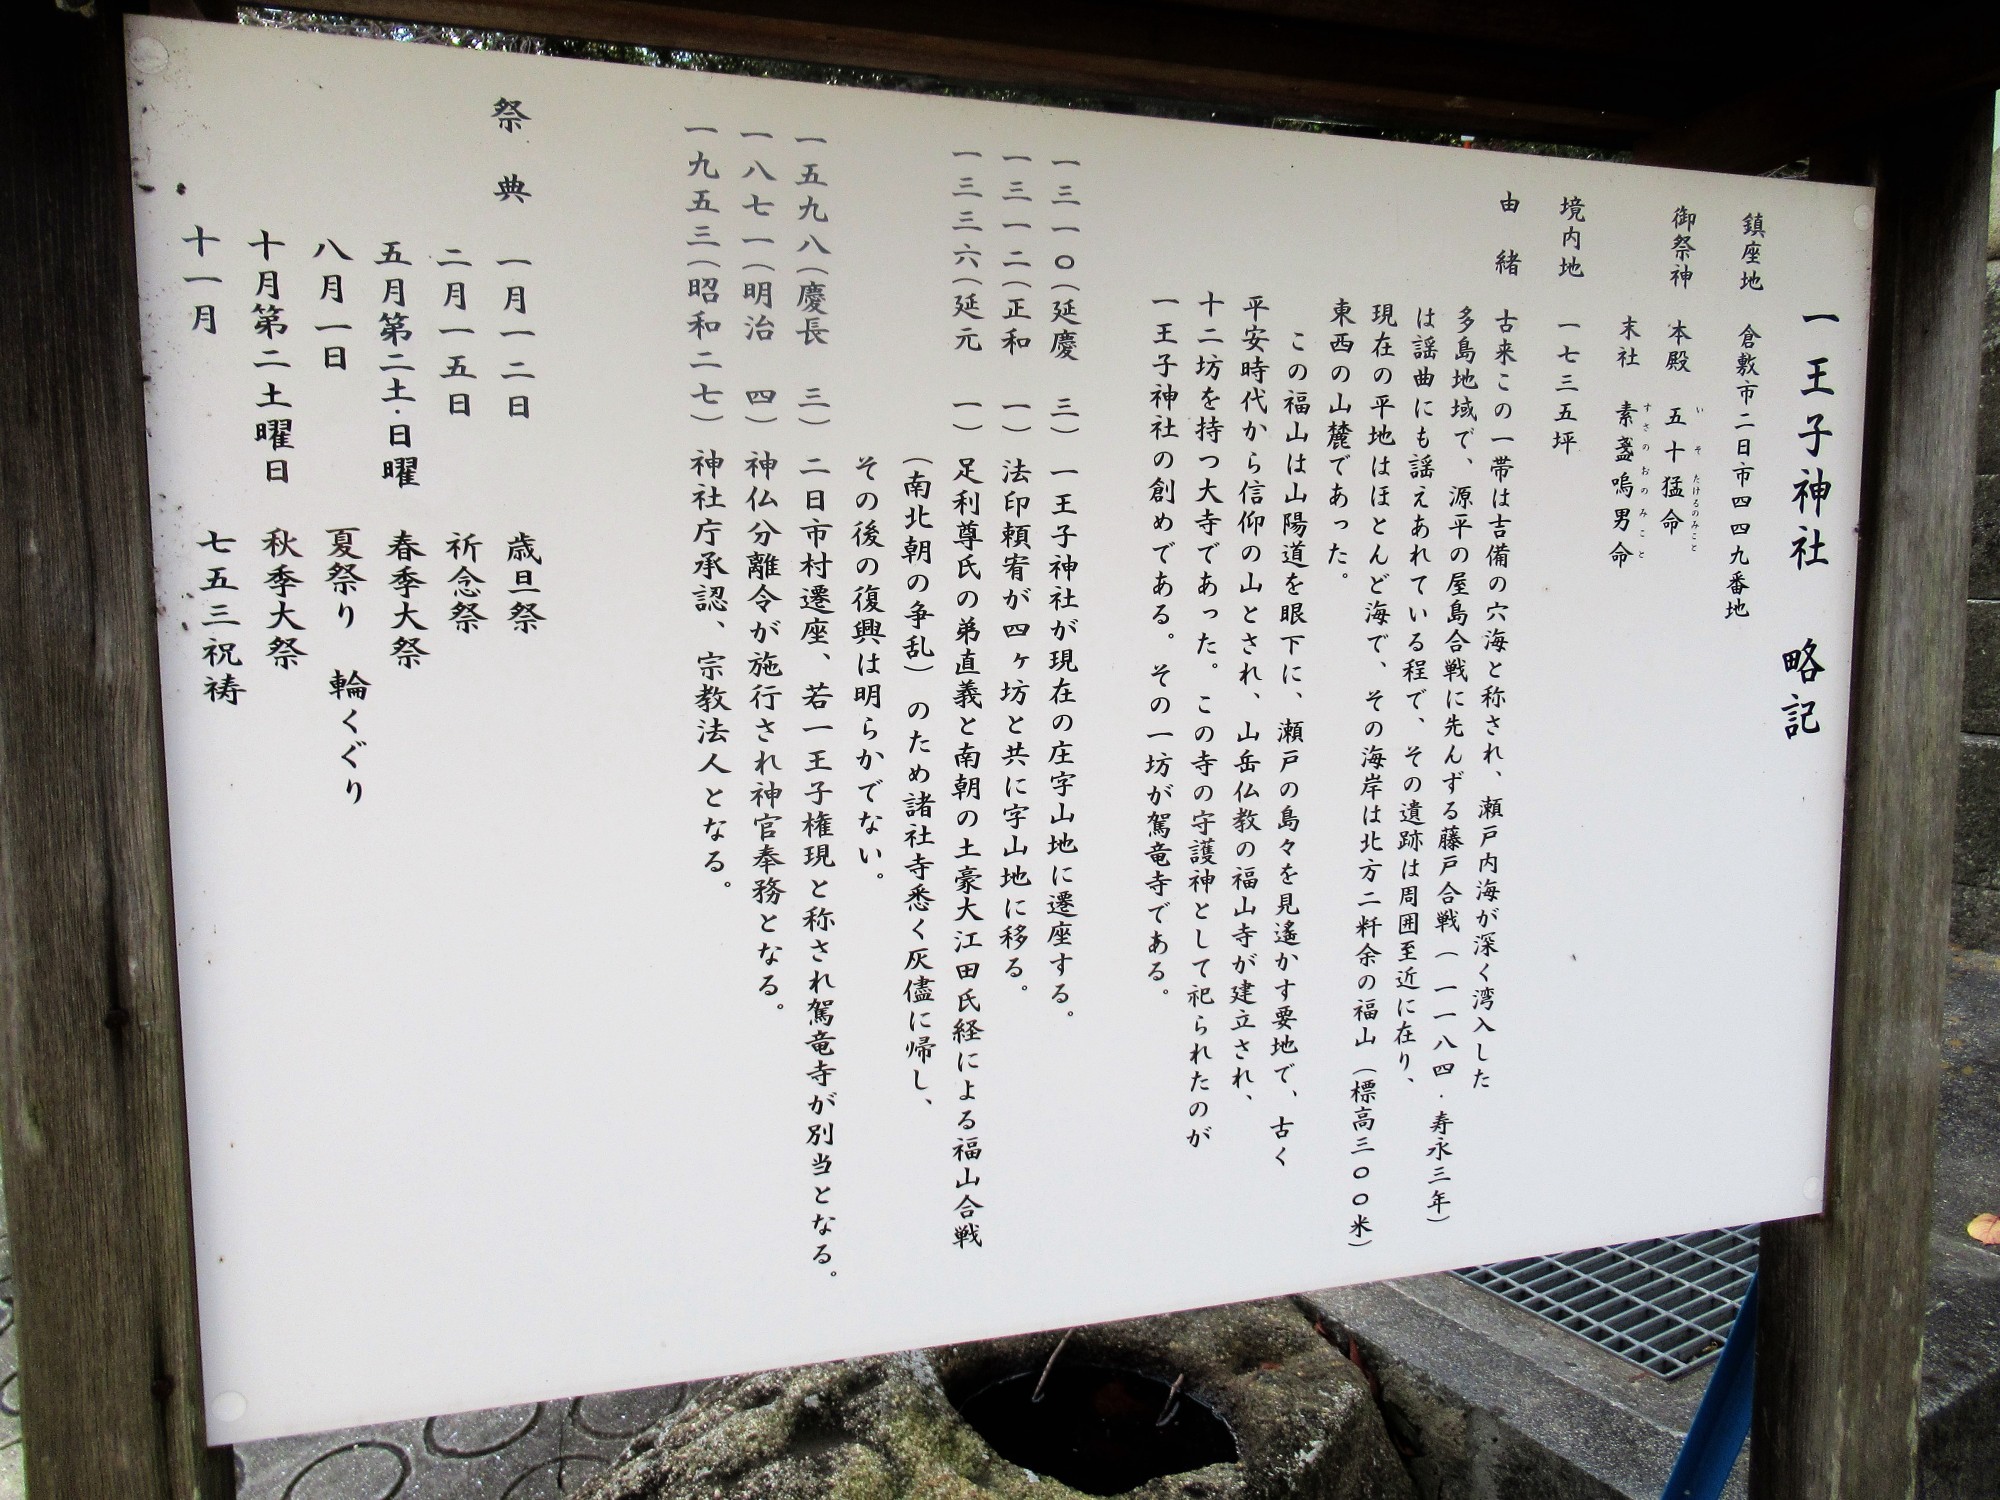 一王子神社　略記
鎮座地　倉敷市二日市四四九番地
御祭神　本殿　五十猛命
いそたけるのみこと
末社　素盞嗚男命
すさのおのみこと
境内地　一七三五坪
由緒　古来この一帯は吉備の穴海と称され、瀬戸内海が深く湾入した
多島地域で、源平の屋島合戦に先んずる藤戸合戦（一一八四・寿永三年）
は謡曲にも謡えあれている程で、その遺跡は周囲至近に在り、
現在の平地はほとんど海で、その海岸は北方二粁余の福山（標高三〇〇米）
東西の山麓であった。
この福山は山陽道を眼下に、瀬戸の島々を見遙かす要地で、古く
平安時代から信仰の山とされ、山岳仏教の福山寺が建立され、
十二坊を持つ大寺であった。この寺の守護神として祀られたのが
一王子神社の創めである。その一坊が駕竜寺である。
一三一〇（延慶　三）一王子神社が現在の庄字山地に遷座する。
一三一二（正和　一）法印頼宥が四ヶ坊と共に字山地に移る。
一三三六（延元　一）足利尊氏の弟直義と南朝の土豪大江田氏経による福山合戦
（南北朝の争乱）のため諸社寺悉く灰儘に帰し、
その後の復興は明らかでない。
一五九八（慶長　三）二日市村遷座、若一王子権現と称され駕竜寺が別当となる。
一八七一（明治　四）神仏分離令が施行され神官奉務となる。
一九五三（昭和二七）神社庁承認、宗教法人となる。
祭典　一月一二日　歳旦祭
二月一五日　祈念祭
五月第二土・日曜　春季大祭
八月一日　夏祭り　輪くぐり
十月第二土曜日　秋季大祭
十一月　七五三祝祷